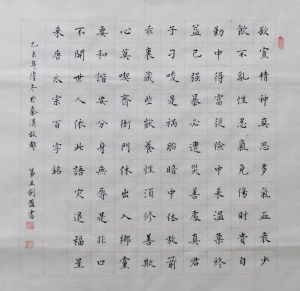 欲寡精神爽思多氣血衰少
飲不亂性忍氣免傷財貴自
勤中得富從儉裏來溫柔終
益己強暴必招災善處真君
子刁唆是禍胎暗中休放箭
乖裏藏些獃養性須修善欺
心莫喫齋衙門休出入鄉黨
要和諧安分身無辱是非口
不開世人依此語災退福星
來唐太宗百字銘
乙未年隆冬於秦漢故都 第五劍書